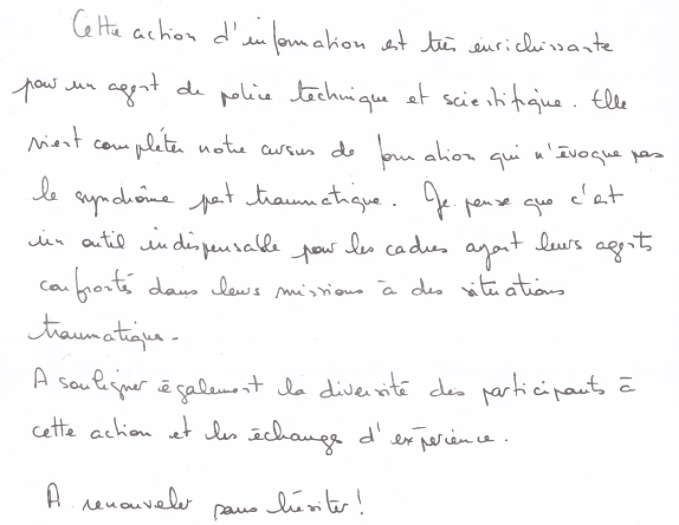 Cette action d'information est très enrichissante
pour un agent de police technique et scientifique. Elle
vient compléter notre cursus de formation qui n'évoque pas
le syndrôme post traumatique. Je pense que c'est
un outil indispensable pour les cadres ayant leurs agents
confrontés dans leurs missions à des situations
traumatique.
A souligner également la diversité des participants à
cette action et les échange d'expérience.
A renouveler sans hésiter !